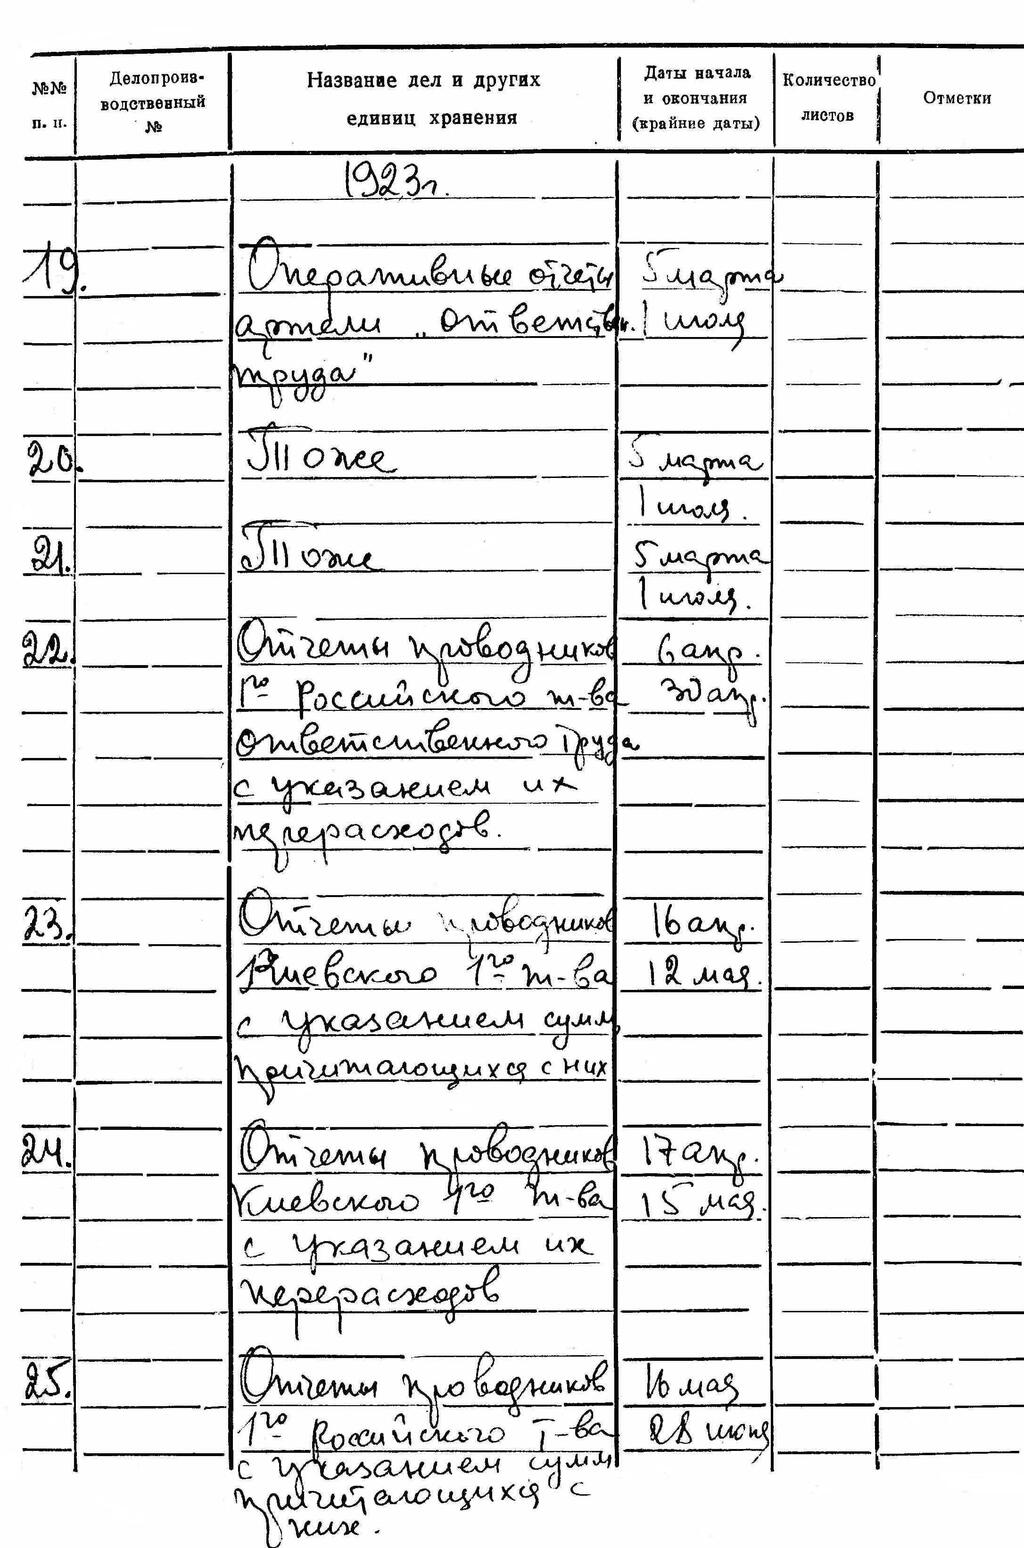 №№ п. п.
Делопроиз-
водственный
№
Название дел и других
единиц хранения
Даты начала
и окончания
(крайние даты)
Количество
листов
Отметки
1923г.
19. Оперативные отчеты 5 марта
артели „ответствен. 1 июля
труда"
20. Тоже 5 марта
1 июля.
21. Тоже 5 марта
1 июля.
22. Отчеты проводников 6 апр.
1го Российского т-ва 30 апр.
ответственного труда
с указанием их
перерасходов.
23. Отчеты проводников 16 апр.
Киевского 1го т-ва 12 мая.
с указанием сумм,
причитающихся с них
24. Отчеты проводников 17 апр.
Киевского 1го т-ва 15 мая.
с указанием их
перерасходов
25. Отчеты проводников 16 мая
1го Российского т-ва 28 июня
с указанием сумм
причитающихся с
них.